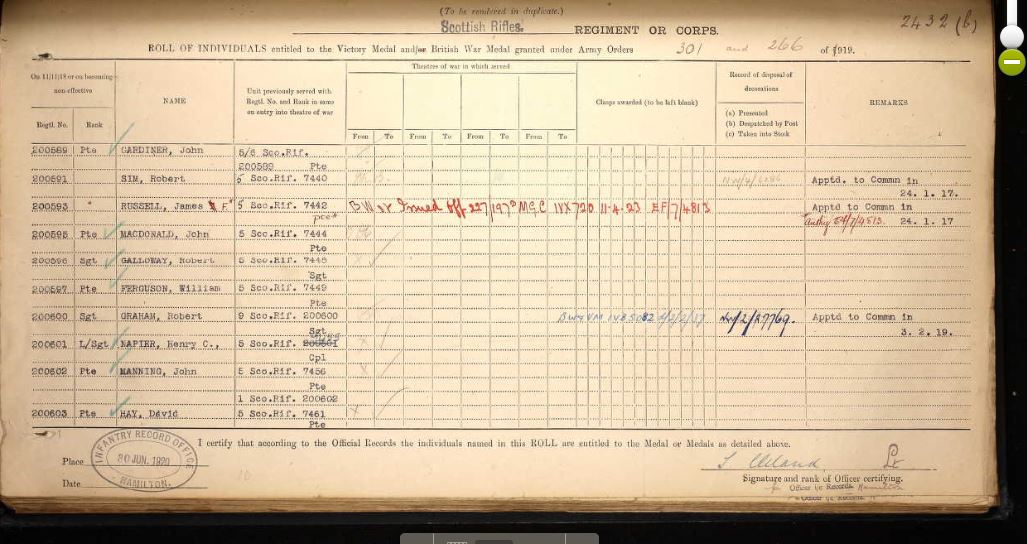 (To be rendered in duplicate.)
Scottish Rifles. REGIMENT OR CORPS.
2432 (b)
ROLL OF INDIVIDUALS entitled to the Victory Medal and/or British War Medal granted under Army Orders 301 and 266 of 1919.
On 11/11/18 or on becoming non-effective
Regtl. No. Rank
NAME
Unit previously served with Regtl. No. and Rank in same on entry into theatre of war
Theatres of war in which served
From To From To From To From To
Clasps awarded (to be left blank)
Record of disposal of decorations
(a) Presented
(b) Despatched by Post
(c) Taken into Stock
REMARKS
200589 Pte GARDINER, John 5/6 Sco.Rif.
200589 Pte
200591 SIM, Robert 5 Sco.Rif. 7440 Apptd. to Commn in
24. 1. 17.
200593 " RUSSELL, James F 5 Sco.Rif. 7442 BW Issued Off 227/197 MGC IVX720 11-4-23 EF/7/4813 Apptd to Commn in
24. 1. 17
200595 Pte MACDONALD, John 5 Sco.Rif. 7444
Pte
200596 Sgt GALLOWAY, Robert 5 Sco.Rif. 7448
Sgt
200597 Pte FERGUSON, William 5 Sco.Rif. 7449
Pte
200600 Sgt GRAHAM, Robert 9 Sco.Rif. 200600 Apptd to Commn in
Sgt 3. 2. 19.
200601 L/Sgt NAPIER, Henry C., 5 Sco.Rif. 200601
Cpl
200602 Pte MANNING, John 5 Sco.Rif. 7456
Pte
1 Sco.Rif. 200602
200603 Pte HAY, David 5 Sco.Rif. 7461
Pte
I certify that according to the Official Records the individuals named in this ROLL are entitled to the Medal or Medals as detailed above.
Place
INFANTRY RECORD OFFICE
30 JUN. 1920
HAMILTON.
Date
Cleland Lt
Signature and rank of Officer certifying.
Officer i/c Records Hamilton
Officer i/c Records